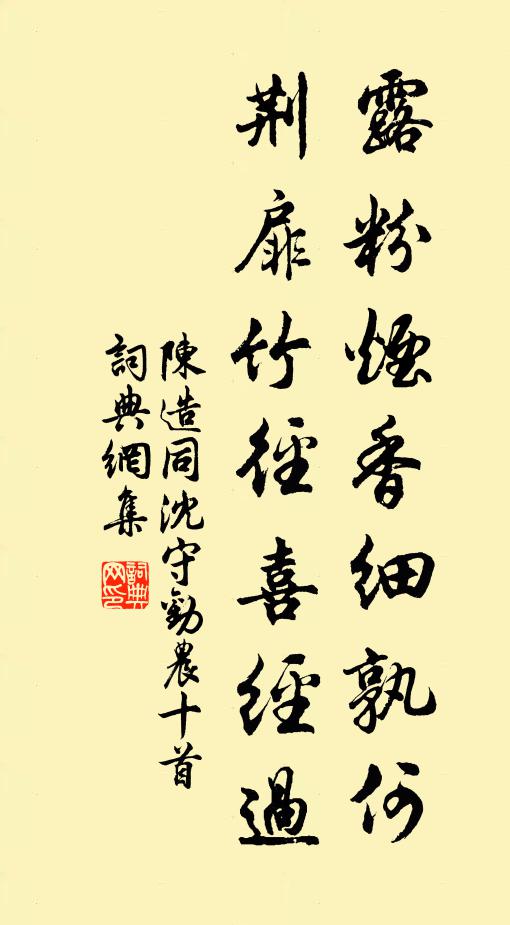 露粉煙香細孰何
荆扉竹徑喜經過
陳造同沈守勸農十首
詞典網集
詞典網印